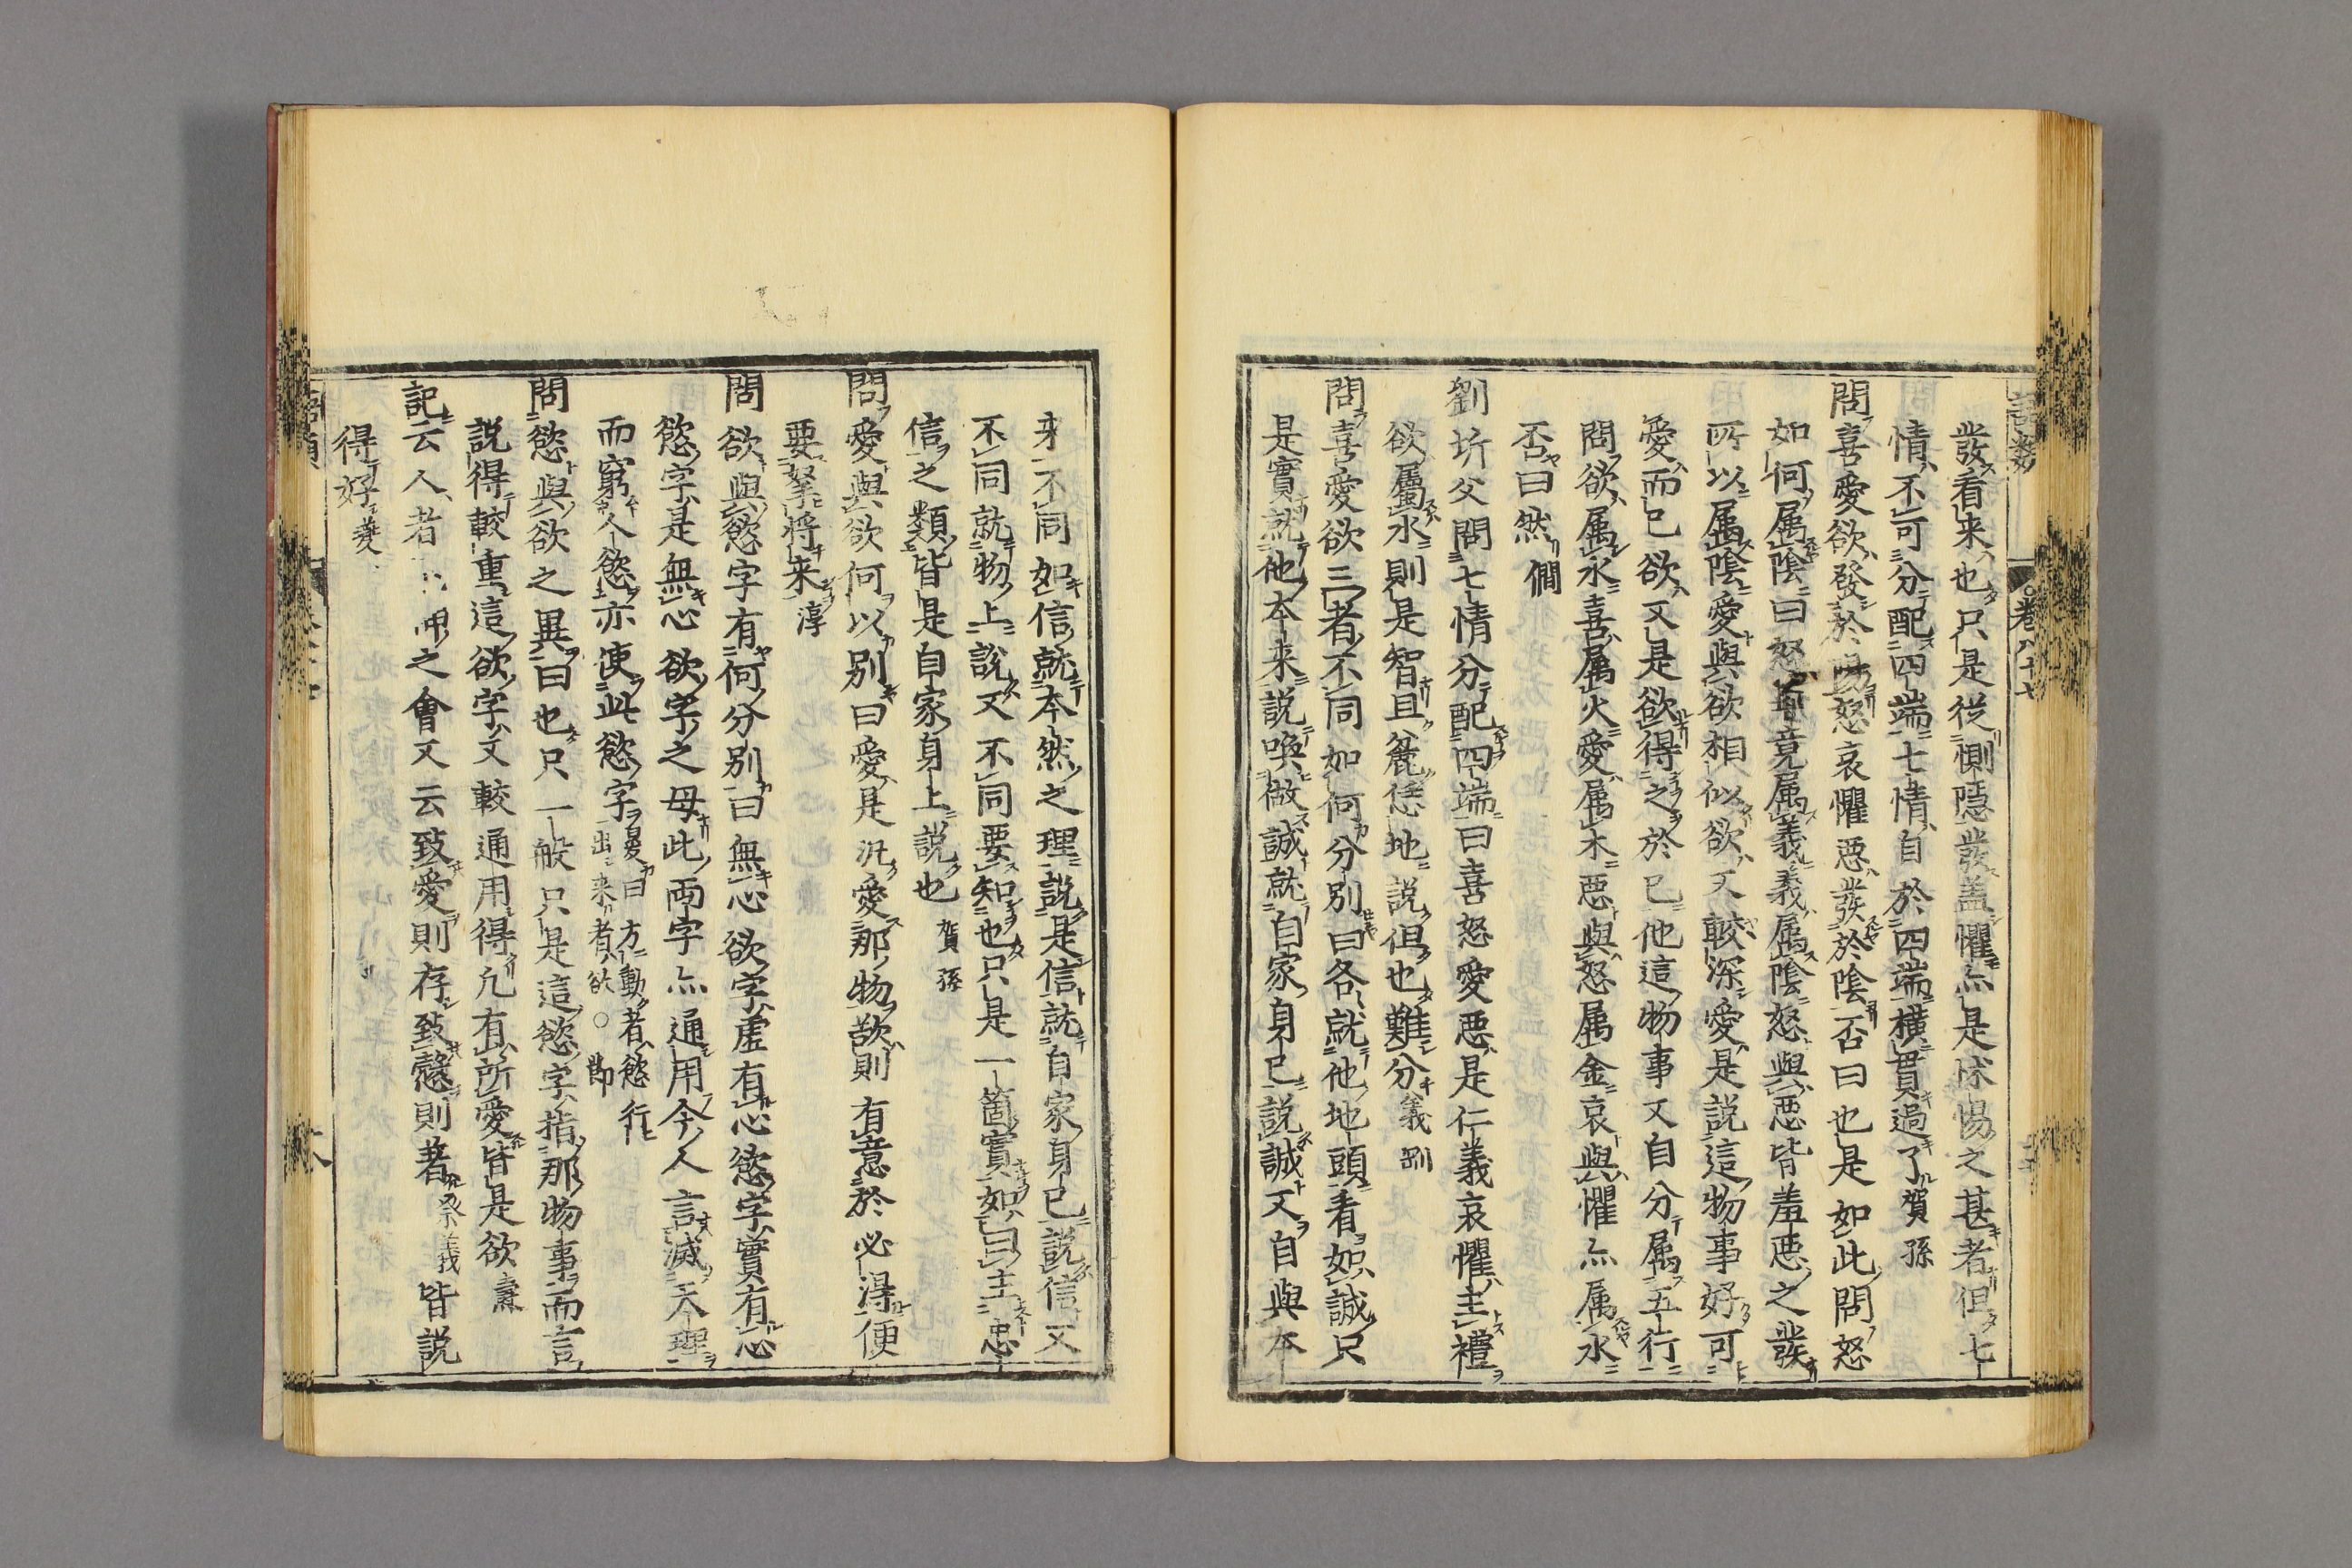 卷八十七
發看来也只是從惻隱發盖懼亦是怵惕之甚者但七
情不可分配四端七情自於四端横貫過了賀孫
問喜愛欲發於陽怒哀懼惡發於陰否曰也是如此問怒
如何属陰曰怒畢竟属義義属陰怒與惡皆羞惡之發
所以属陰愛與欲相似欲又較深愛是説這物事好可
愛而已欲又是欲得之於已他這物事又自分属五行
問欲属水喜属火愛属木惡與怒属金哀與懼亦属水
否曰然僩
劉圻父問七情分配四端曰喜怒愛惡是仁義哀懼主禮
欲屬水則是智且麄恁地説但也難分義剛
問喜愛欲三者不同如何分別曰各就他地頭看如誠只
是實就他本来説喚做誠就自家身已説誠又自與本
来不同如信就本然之理説是信就自家身已説信又
不同就物上説又不同要知也只是一箇實如曰主忠
信之類皆是自家身上説也賀孫
問愛與欲何以別曰愛是汎愛那物欲則有意於必得便
要拏將来淳
問欲與慾字有何分別曰無心欲字虚有心慾字實有心
慾字是無心欲字之母此兩字亦通用今人言滅天理
而窮人慾亦使此慾字㬊曰方動者慾行出来者欲○節
問慾與欲之異曰也只一般只是這慾字指那物事而言
説得較重這欲字又較通用得凡有所愛皆是欲燾
記云人者之會又云致愛則存致慤則著祭義皆説
得好夔